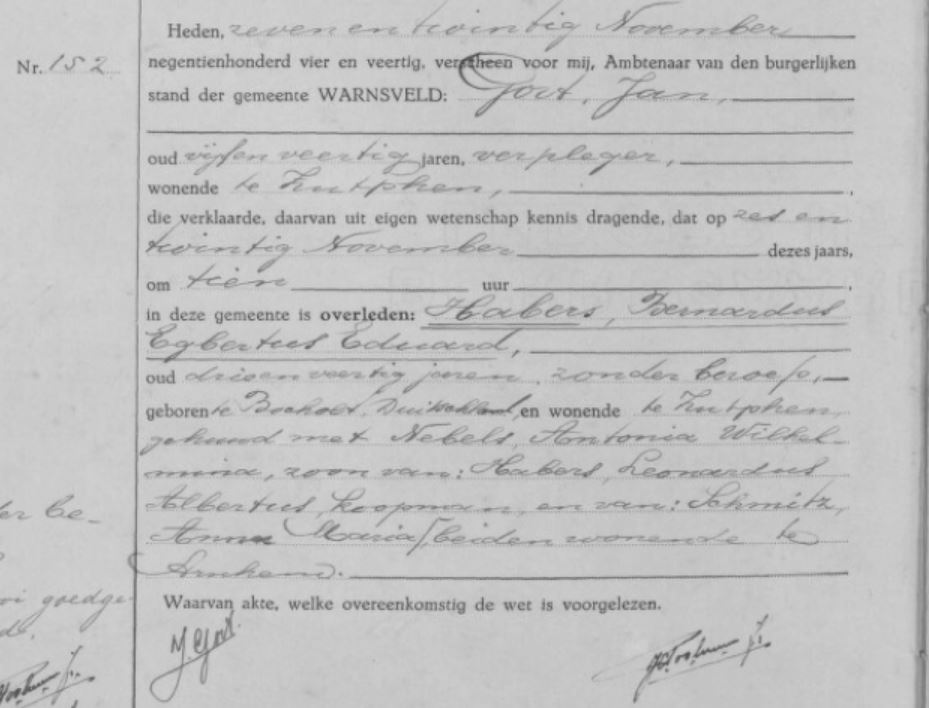 Heden, zeven en twintig November
Nr. 152
negentienhonderd vier en veertig, verscheen voor mij, Ambtenaar van den burgerlijken
stand der gemeente WARNSVELD: Govt, Jan,
oud vijf en veertig jaren, verpleger,
wonende te Zutphen,
die verklaarde, daarvan uit eigen wetenschap kennis dragende, dat op zes en
twintig November dezes jaars,
om tien uur
in deze gemeente is overleden: Habers, Bernardus
Egbertus Eduard,
oud drie en veertig jaren, zonder beroep,
geboren te Bocholt, Duitschland, en wonende te Zutphen,
gehuwd met Nebels, Antonia Wilhel-
mina, zoon van: Habers, Leonardus
Albertus, koopman, en van: Schmitz,
Anna Maria, beiden wonende te
Arnhem.
Waarvan akte, welke overeenkomstig de wet is voorgelezen.
der be-
goedge-